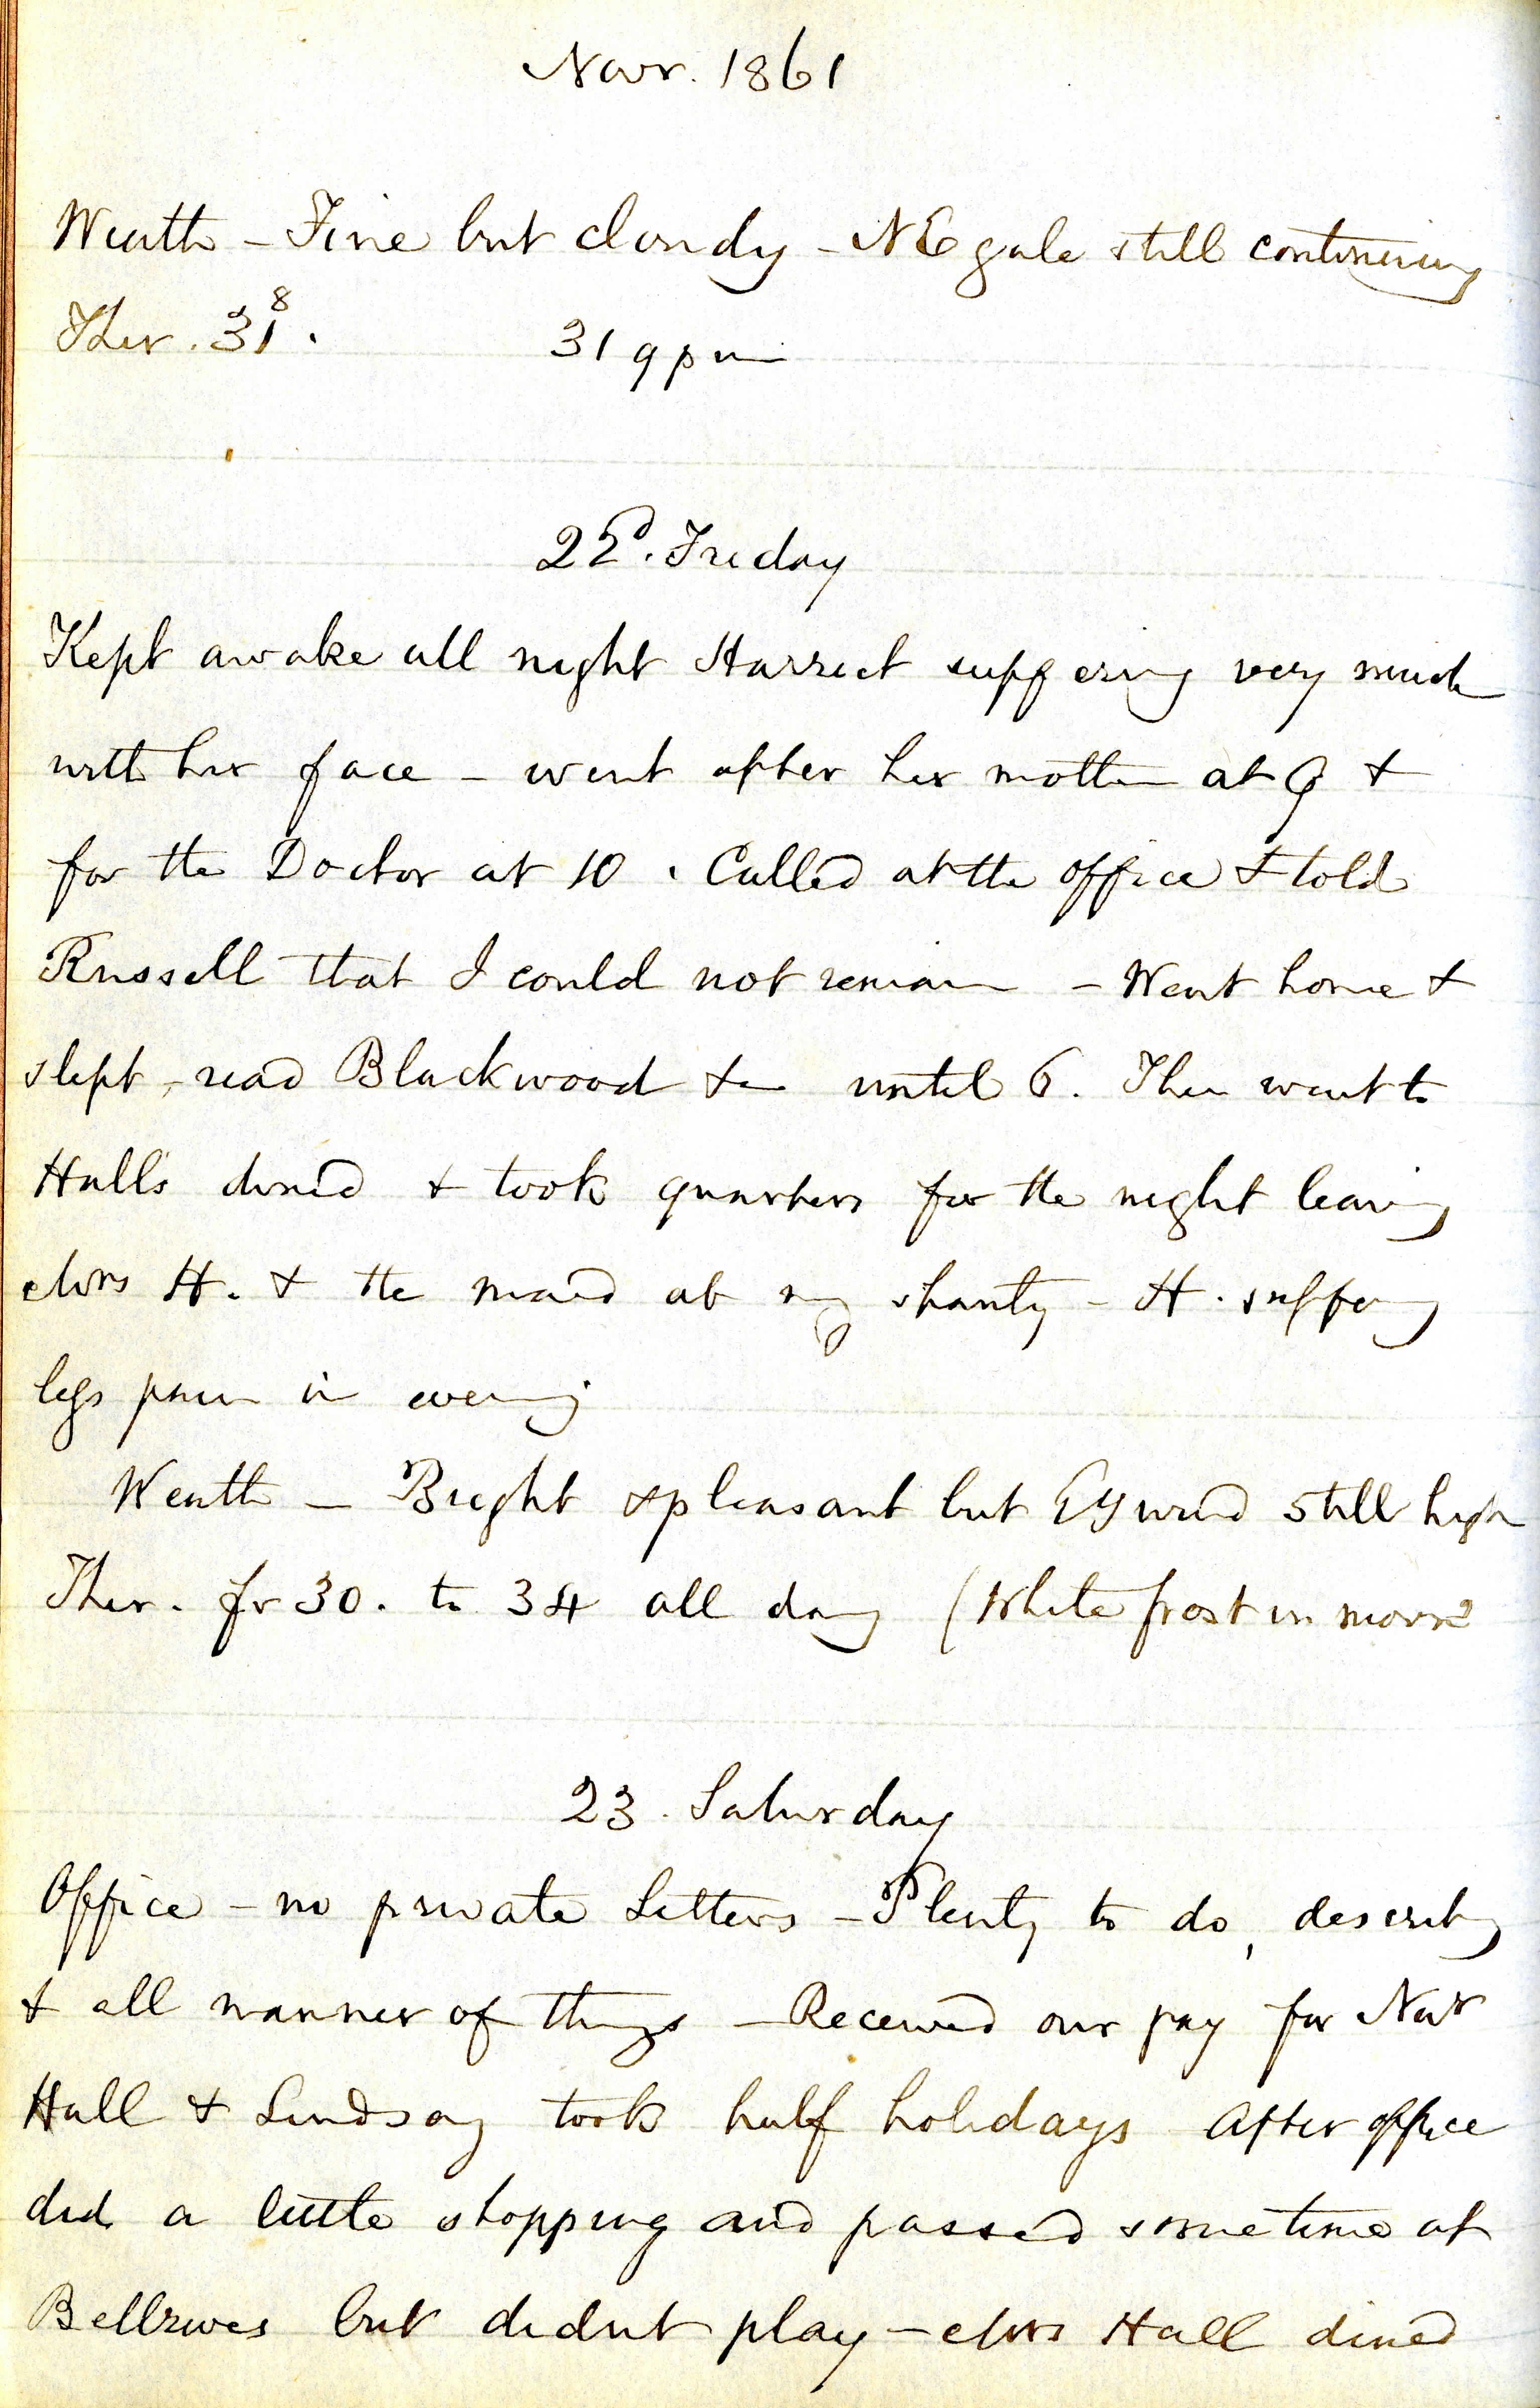 Novr. 1861
Weath - Fine but cloudy - NE gale still continuing
Ther. 31 8.    31 9 pm
22d. Friday
Kept awake all night Harriet suffering very much
with her face - went after her mother at 9 &
for the Doctor at 10. Called at the office & told
Russell that I could not remain - Went home &
slept, read Blackwood &c until 6. Then went to
Halls dined & took quarters for the night leaving
Mrs H. & the maid at my shanty - H. suffering
less pain in evening
Weath - Bright & pleasant but Ely wind still high
Ther. fr 30. to 34 all day (White frost in morng
23. Saturday
Office - no private Letters - Plenty to do,
& all manner of things - Received our pay for Novr
Hall & Lindsay took half holidays After office
did a little shopping and passed some time at
but didnt play - Mrs Hall dined